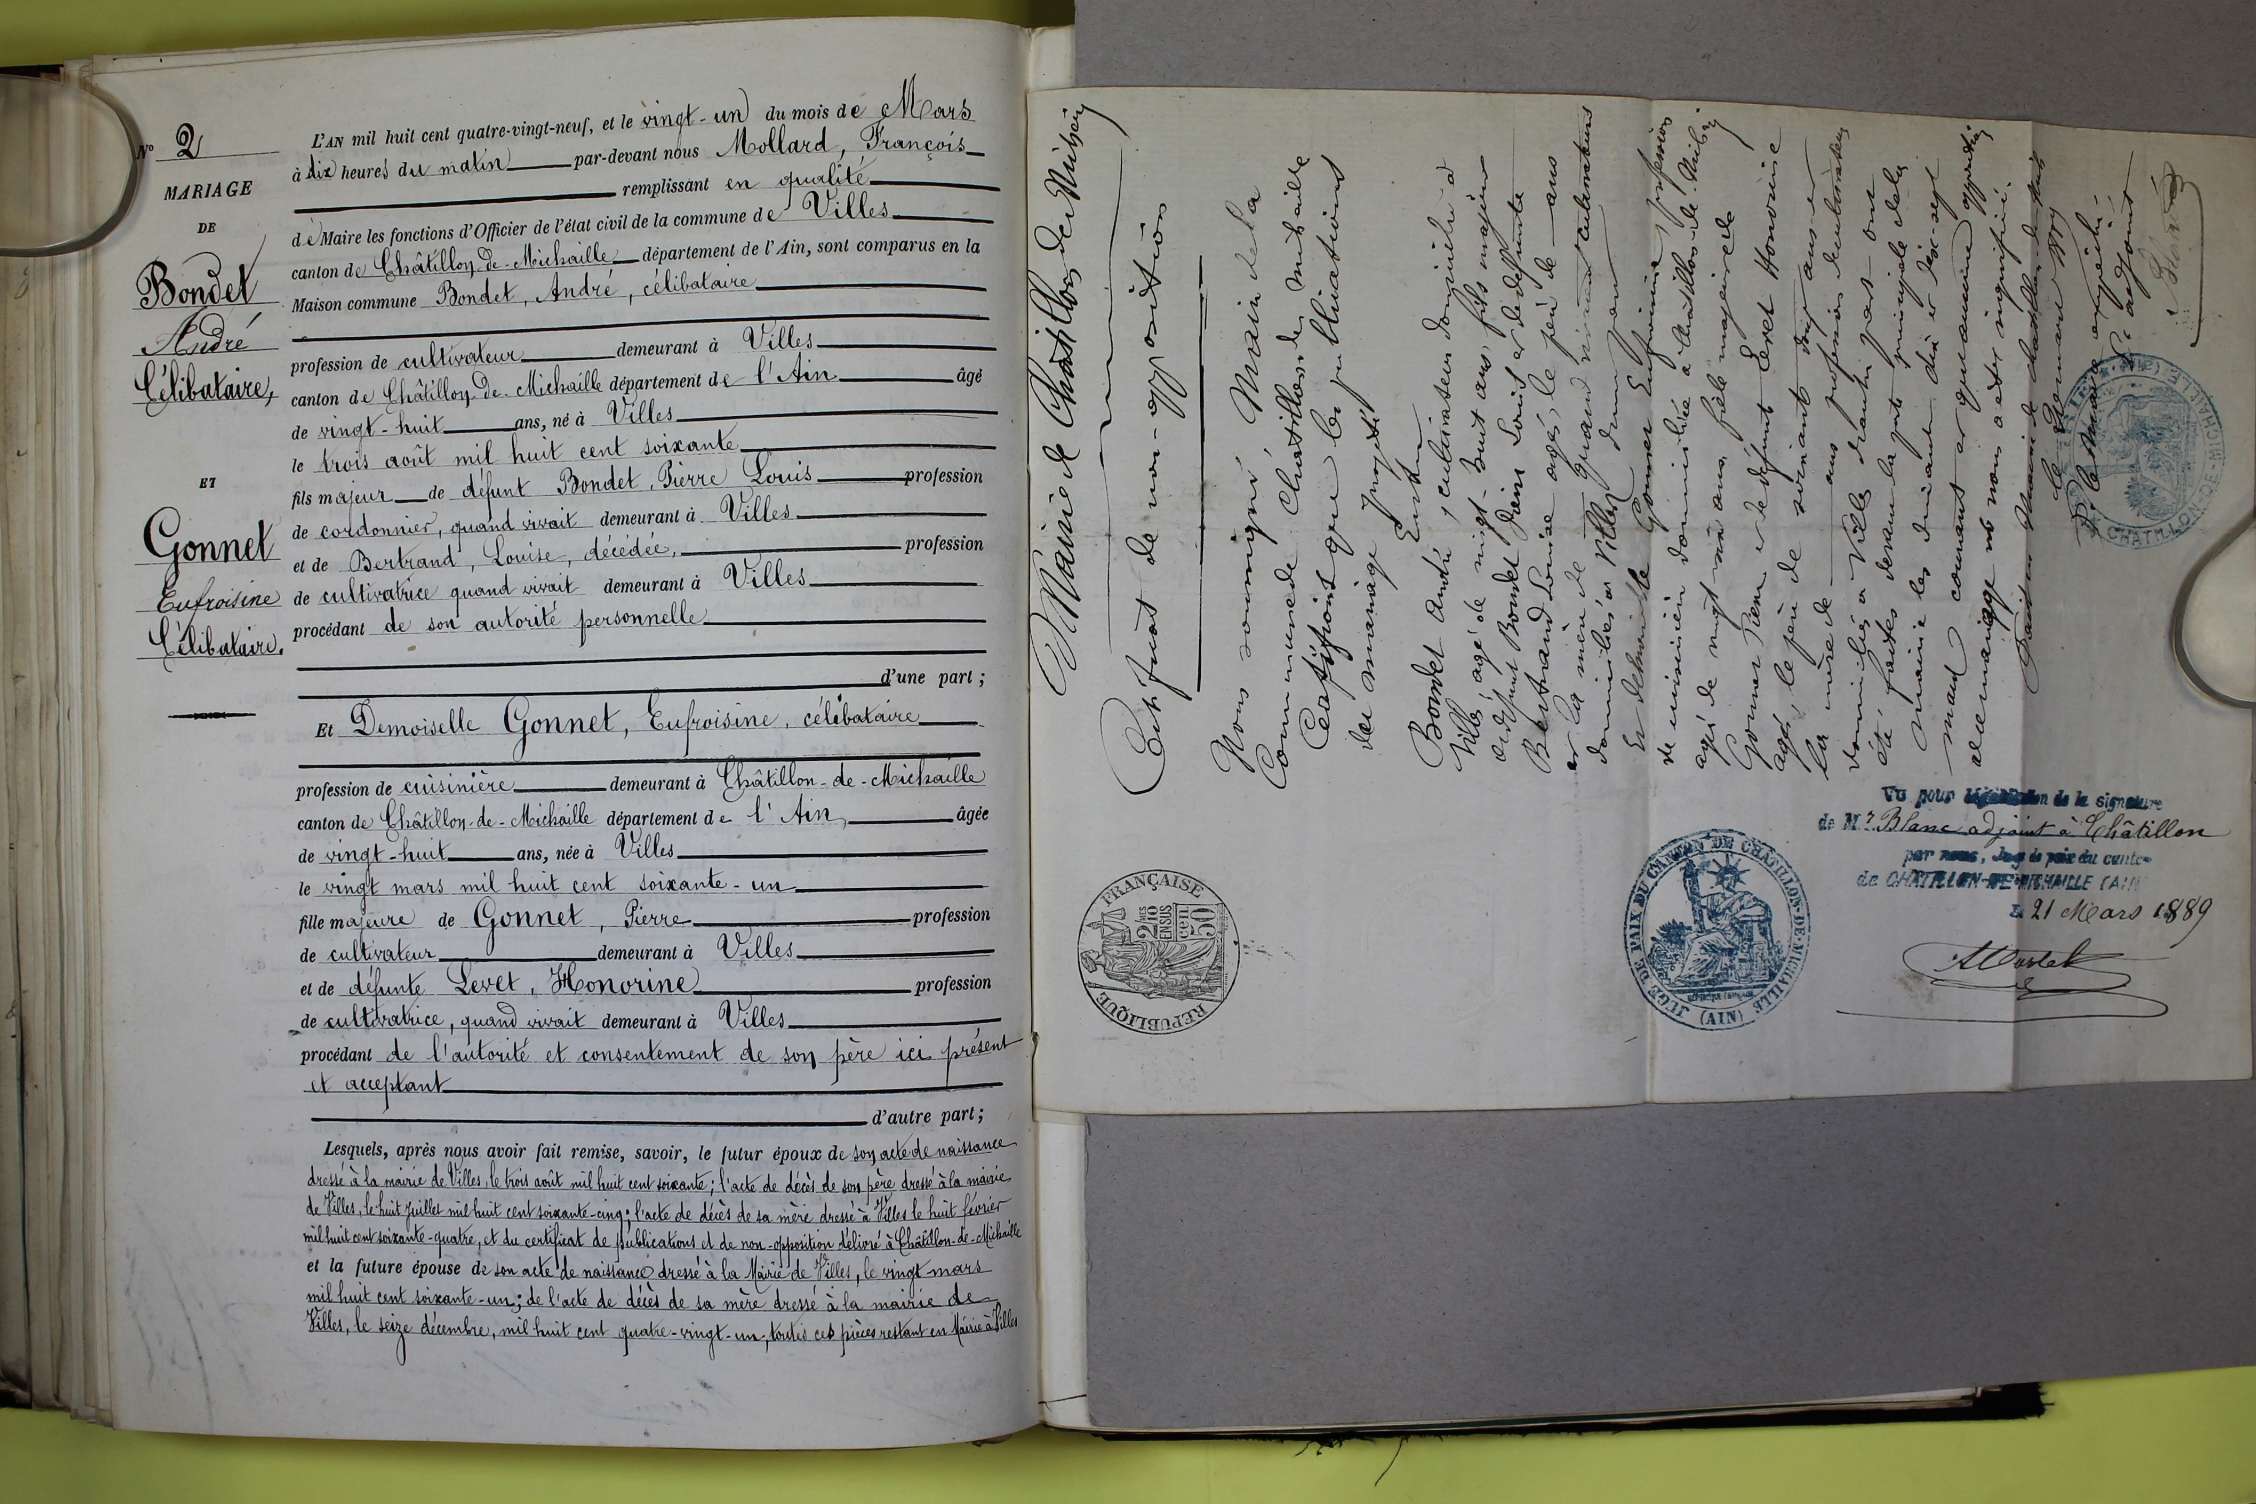 N° 2
MARIAGE
DE
Bondet
André
Célibataire,
ET
Gonnet
Eufroisine
Célibataire.
L'AN mil huit cent quatre-vingt-neuf, et le vingt-un du mois de Mars
à dix heures du matin par-devant nous Mollard, François
remplissant en qualité
de Maire les fonctions d'Officier de l'état civil de la commune de Villes
canton de Châtillon-de-Michaille département de l'Ain, sont comparus en la
Maison commune Bondet, André, célibataire
profession de cultivateur demeurant à Villes
canton de Châtillon-de-Michaille département de l'Ain âgé
de vingt-huit ans, né à Villes
le trois août mil huit cent soixante
fils majeur de défunt Bondet, Pierre Louis profession
de cordonnier, quand vivait demeurant à Villes
et de Bertrand, Louise, décédée, profession
de cultivatrice quand vivait demeurant à Villes
procédant de son autorité personnelle
d'une part ;
Et Demoiselle Gonnet, Eufroisine, célibataire
profession de cuisinière demeurant à Châtillon-de-Michaille
canton de Châtillon-de-Michaille département de l'Ain, âgée
de vingt-huit ans, née à Villes
le vingt mars mil huit cent soixante-un
fille majeure de Gonnet, Pierre profession
de cultivateur demeurant à Villes
et de défunte Levet, Honorine profession
de cultivatrice, quand vivait demeurant à Villes
procédant de l'autorité et consentement de son père ici présent
et acceptant
d'autre part ;
Lesquels, après nous avoir fait remise, savoir, le futur époux de son acte de naissance
dressé à la mairie de Villes, le trois août mil huit cent soixante ; l'acte de décès de son père dressé à la mairie
de Villes, le huit juillet mil huit cent soixante-cinq ; l'acte de décès de sa mère dressé à Villes le huit février
mil huit cent soixante-quatre, et du certificat de publications et de non-opposition délivré à Châtillon-de-Michaille
et la future épouse de son acte de naissance dressé à la Mairie de Villes, le vingt mars
mil huit cent soixante-un ; de l'acte de décès de sa mère dressé à la mairie de
Villes, le seize décembre, mil huit cent quatre-vingt-un, toutes ces pièces restant en Mairie à Villes
Mairie de Chatillon de Michaille
Certificat de non-opposition
Nous soussigné Maire de la
Commune de Chatillon de Michaille
Certifions que les publications
de mariage projeté
Entre
Bondet André, cultivateur domicilié à
Villes agé de vingt-huit ans, fils majeur
de défunt Bondet Pierre Louis et de défunte
Bertrand Louise agés, le père de ans
et la mère de quand vivaient cultivateurs
domiciliés à Villes d'une part
Et demoiselle Gonnet Eufroisine, profession
de cuisinière domiciliée à Chatillon-de-Michaille
agé de vingt-huit ans, fille majeure de
Gonnet Pierre et de défunte Levet Honorine
agés, le père de soixante ans et
la mère de ans profession de cultivateurs
domiciliés à Villes d'autre part ont
été faites devant la porte principale de la
Mairie les dimanche dix et dix-sept
mars courant et qu'aucune opposition
au mariage ne nous a été signifiée.
Fait en Mairie de Chatillon
P. le Maire empêché
L'adjoint
Blanc
CHATILLON-DE-MICHAILLE
REPUBLIQUE FRANÇAISE
2/10 EN SUS
50 cen
JUGE DE PAIX DU CANTON DE CHATILLON-DE-MICHAILLE (AIN)
Vu pour légalisation de la signature
de Mr Blanc adjoint à Châtillon
par nous, Juge de paix du canton
de CHATILLON-DE-MICHAILLE (AIN)
Le 21 Mars 1889